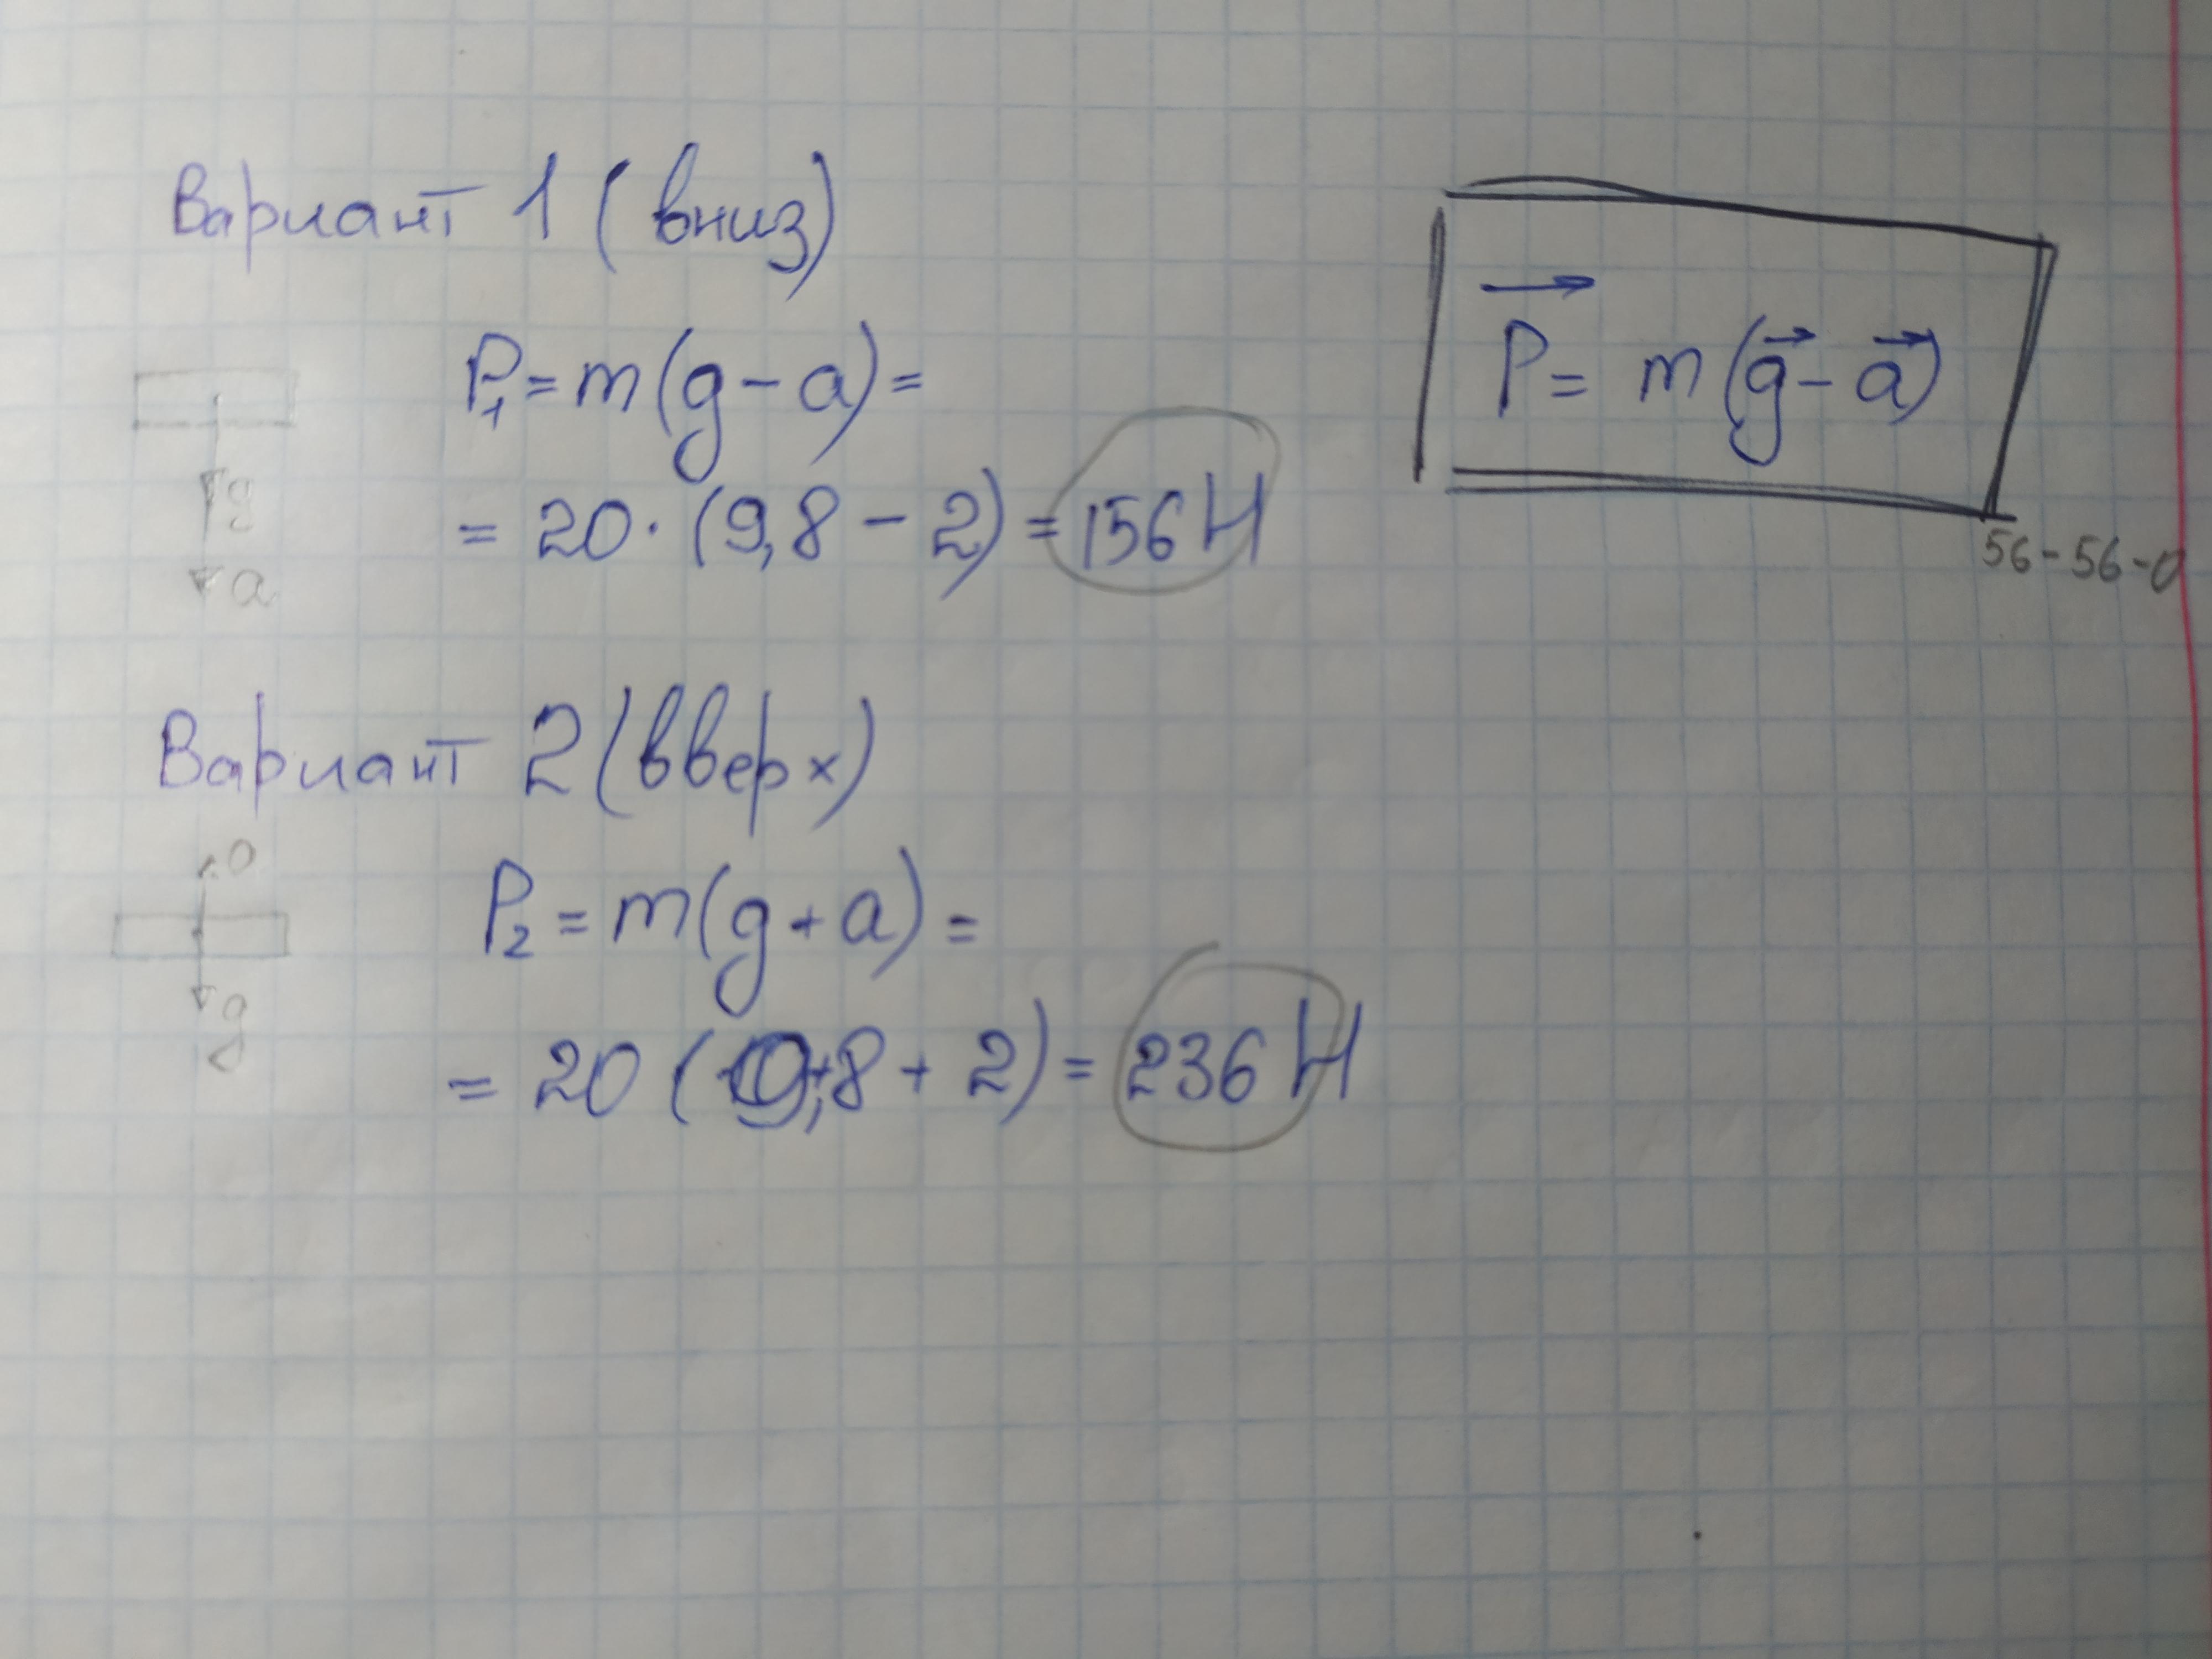 Вариант 1 (вниз)
P₁ = m(g - a) =
= 20 · (9,8 - 2) = 156 Н
g
a
P⃗ = m(g⃗ - a⃗)
56-56-0
Вариант 2 (вверх)
a
P₂ = m(g + a) =
g
= 20 (9,8 + 2) = 236 Н